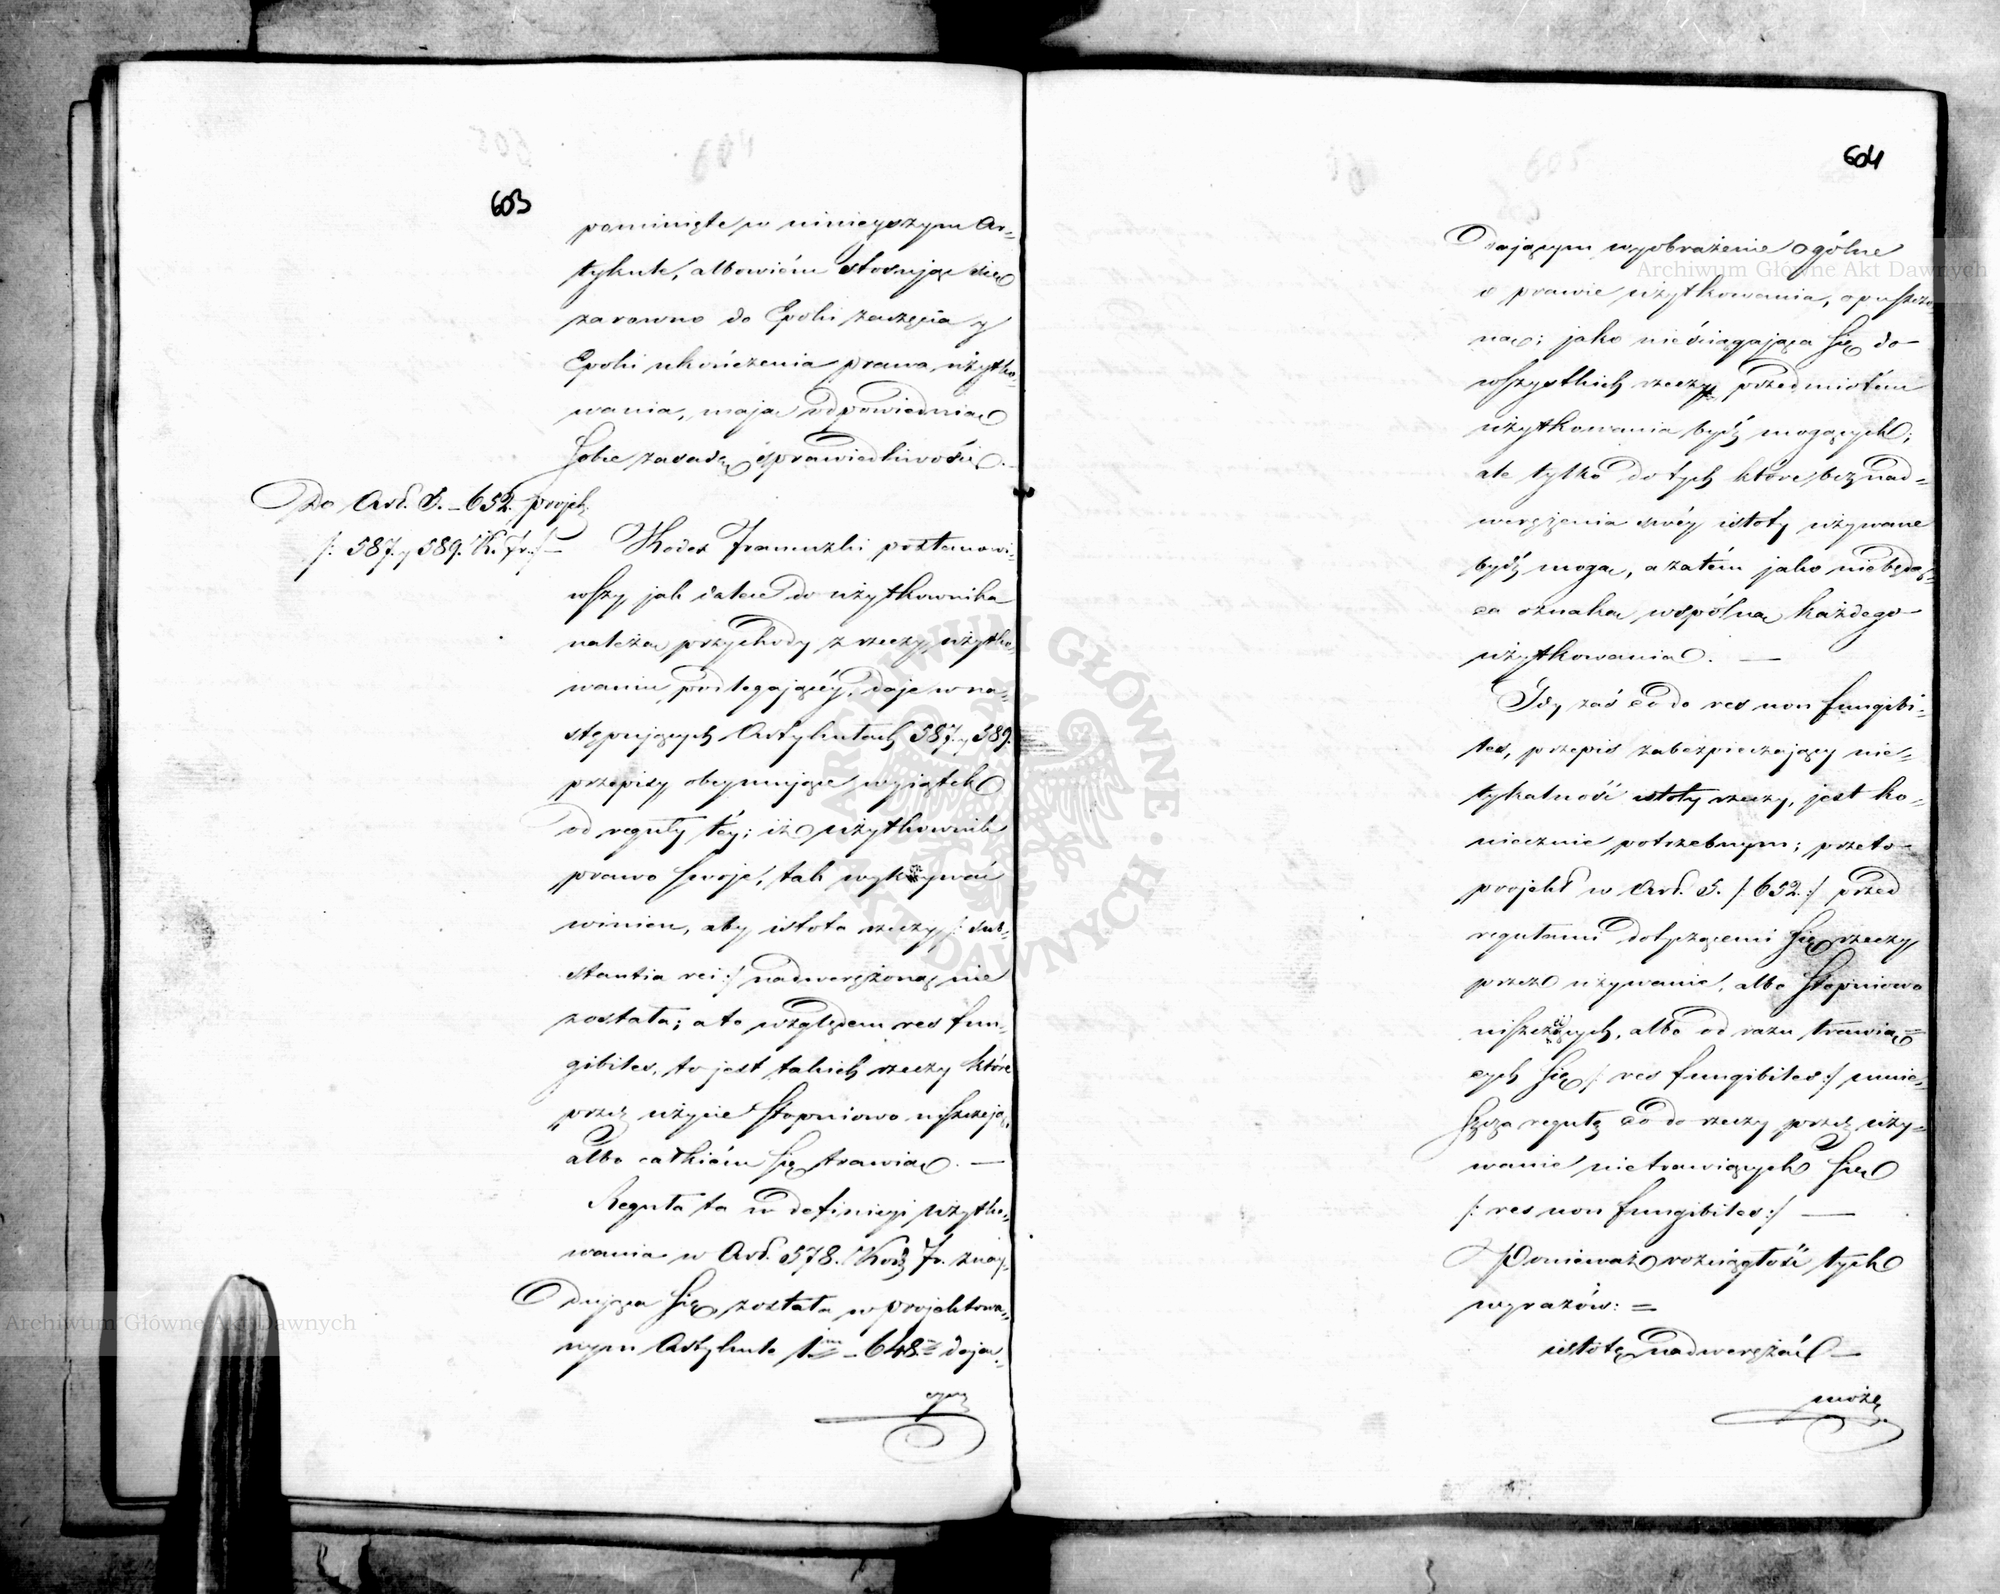 603
pominięte w ninieyszym Ar-
tykule, albowiém stosując się
zarowno do Epoki zaczęcia y
Epoki ukończenia prawa użytko-
wania, maja odpowiednia
sobie zasadę sprawiedliwości.
Do Art. 5. – 652. projek.
/: 587. y 589. K. Fr. :/ –
Kodex Francuzki postanowi-
wszy jak dalece do użytkownika
należa przychody z rzeczy użytko-
waniu podlegającéy, daje w na-
stępujących Artykułach 587. y 589.
przepisy obeymujące wyiątek
od reguły téy; iż użytkownik
prawo swoje, tak wykonywać
winien, aby istota rzeczy /: sub-
stantia rei :/ nadwerężoną nie
została; a to względem res fun-
gibiles, to jest takich rzeczy które
przez użycie stopniowo niszczeją,
albo całkiém się trawią. —
Reguła ta w definicyi użytko-
wania w Art. 578. Kod. Fr. znay-
dująca się, została w projektowa-
nym Artykule 1m – 648. daja-
cym
604
dającym wyobrażenie ogólne
o prawie użytkowania, opuszczo-
na; jako nieściągająca się do
wszystkich rzeczy przedmiotem
użytkowania bydź mogących;
ale tylko do tych które bez nad-
wereżenia swéy istoty używane
bydź moga, a zatém jako niebędą-
ca oznaka wspólna każdego
użytkowania. —
Gdy zaś co do res non fungibi-
les, przepis zabezpieczający nie-
tykalność istoty rzeczy, jest ko-
niecznie potrzebnym; przeto
projekt w Art. 5. /: 652. :/ przed
regułami dotyczącemi się rzeczy
przez używanie, albo stopniowo
niszczących, albo od razu trawią-
cych się /: res fungibiles :/ umie-
szcza regułę co do rzeczy przez uży-
wanie nietrawiących się
/: res non fungibiles :/ —
Ponieważ rozciągłość tych
wyrazów: =
istotę nadwerężać —
może
Archiwum Główne Akt Dawnych
Archiwum Główne Akt Dawnych
ARCHIWUM GŁÓWNE AKT DAWNYCH